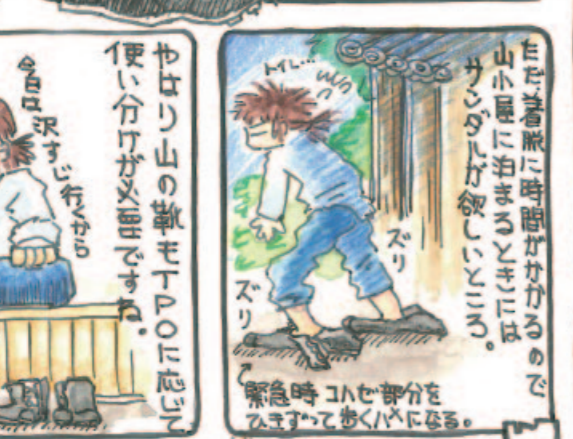 ただ、着脱に時間がかかるので
山小屋に泊まるときには
サンダルが欲しいところ。
トイレ…
ズリ
ズリ
緊急時 コハゼ部分を
ひきずって歩くハメになる。
やはり山の靴もTPOに応じて
使い分けが必要ですね。
今日は
沢すじ
行くから